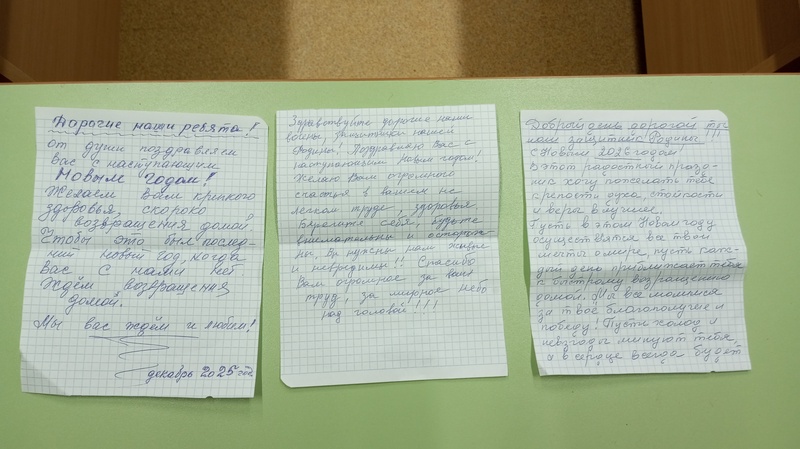 Дорогие наши ребята!
от души поздравляем
вас с наступающим
Новым годом!
Желаем Вам крепкого
здоровья, скорого
возвращения домой
Чтобы это был послед-
ний новый год, когда
Вас с нами нет
Ждём возвращения
домой.
Мы вас ждём и любим!
декабрь 2025 год.
Здравствуйте дорогие наши
воины, защитники нашей
Родины! Поздравляю Вас с
наступающим Новым годом!
Желаю Вам огромного
счастья в вашем не
легком труде, здоровья.
Берегите себя, будьте
внимательны и осторож-
ны, Вы нужны нам живые
и невредимы!! Спасибо
Вам огромное за ваш
труд, за мирное небо
над головой!!!
Добрый день дорогой
наш защитник Родины!!!
С Новым 2026 годом!
В этот радостный празд-
ник хочу пожелать тебе
крепости духа, стойкости
и веры в лучшее.
Пусть в этом Новом году
осуществятся все твои
мечты о мире, пусть каж-
дый день приближает тебя
к быстрому возвращению
домой. Мы все молимся
за твое благополучие и
победу! Пусть холод и
невзгоды минуют тебя,
а в сердце всегда будет